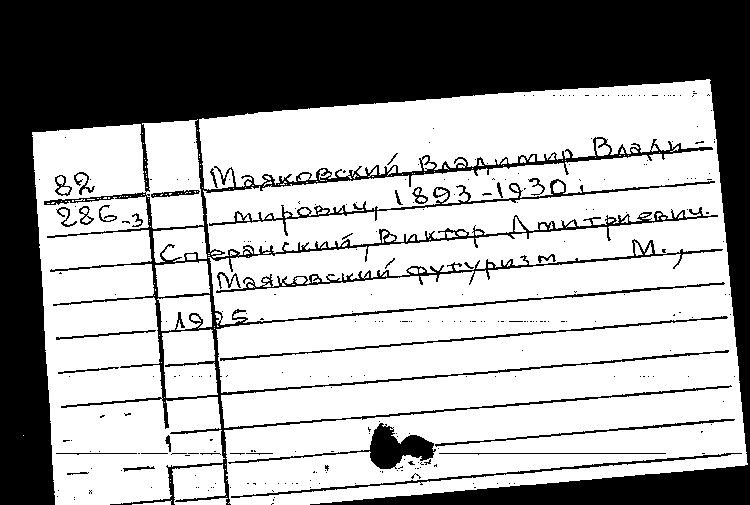 82
286-3
Маяковский, Владимир Влади-
мирович, 1893-1930.
Сперанский, Виктор Дмитриевич.
Маяковский футуризм. М.,
1925.